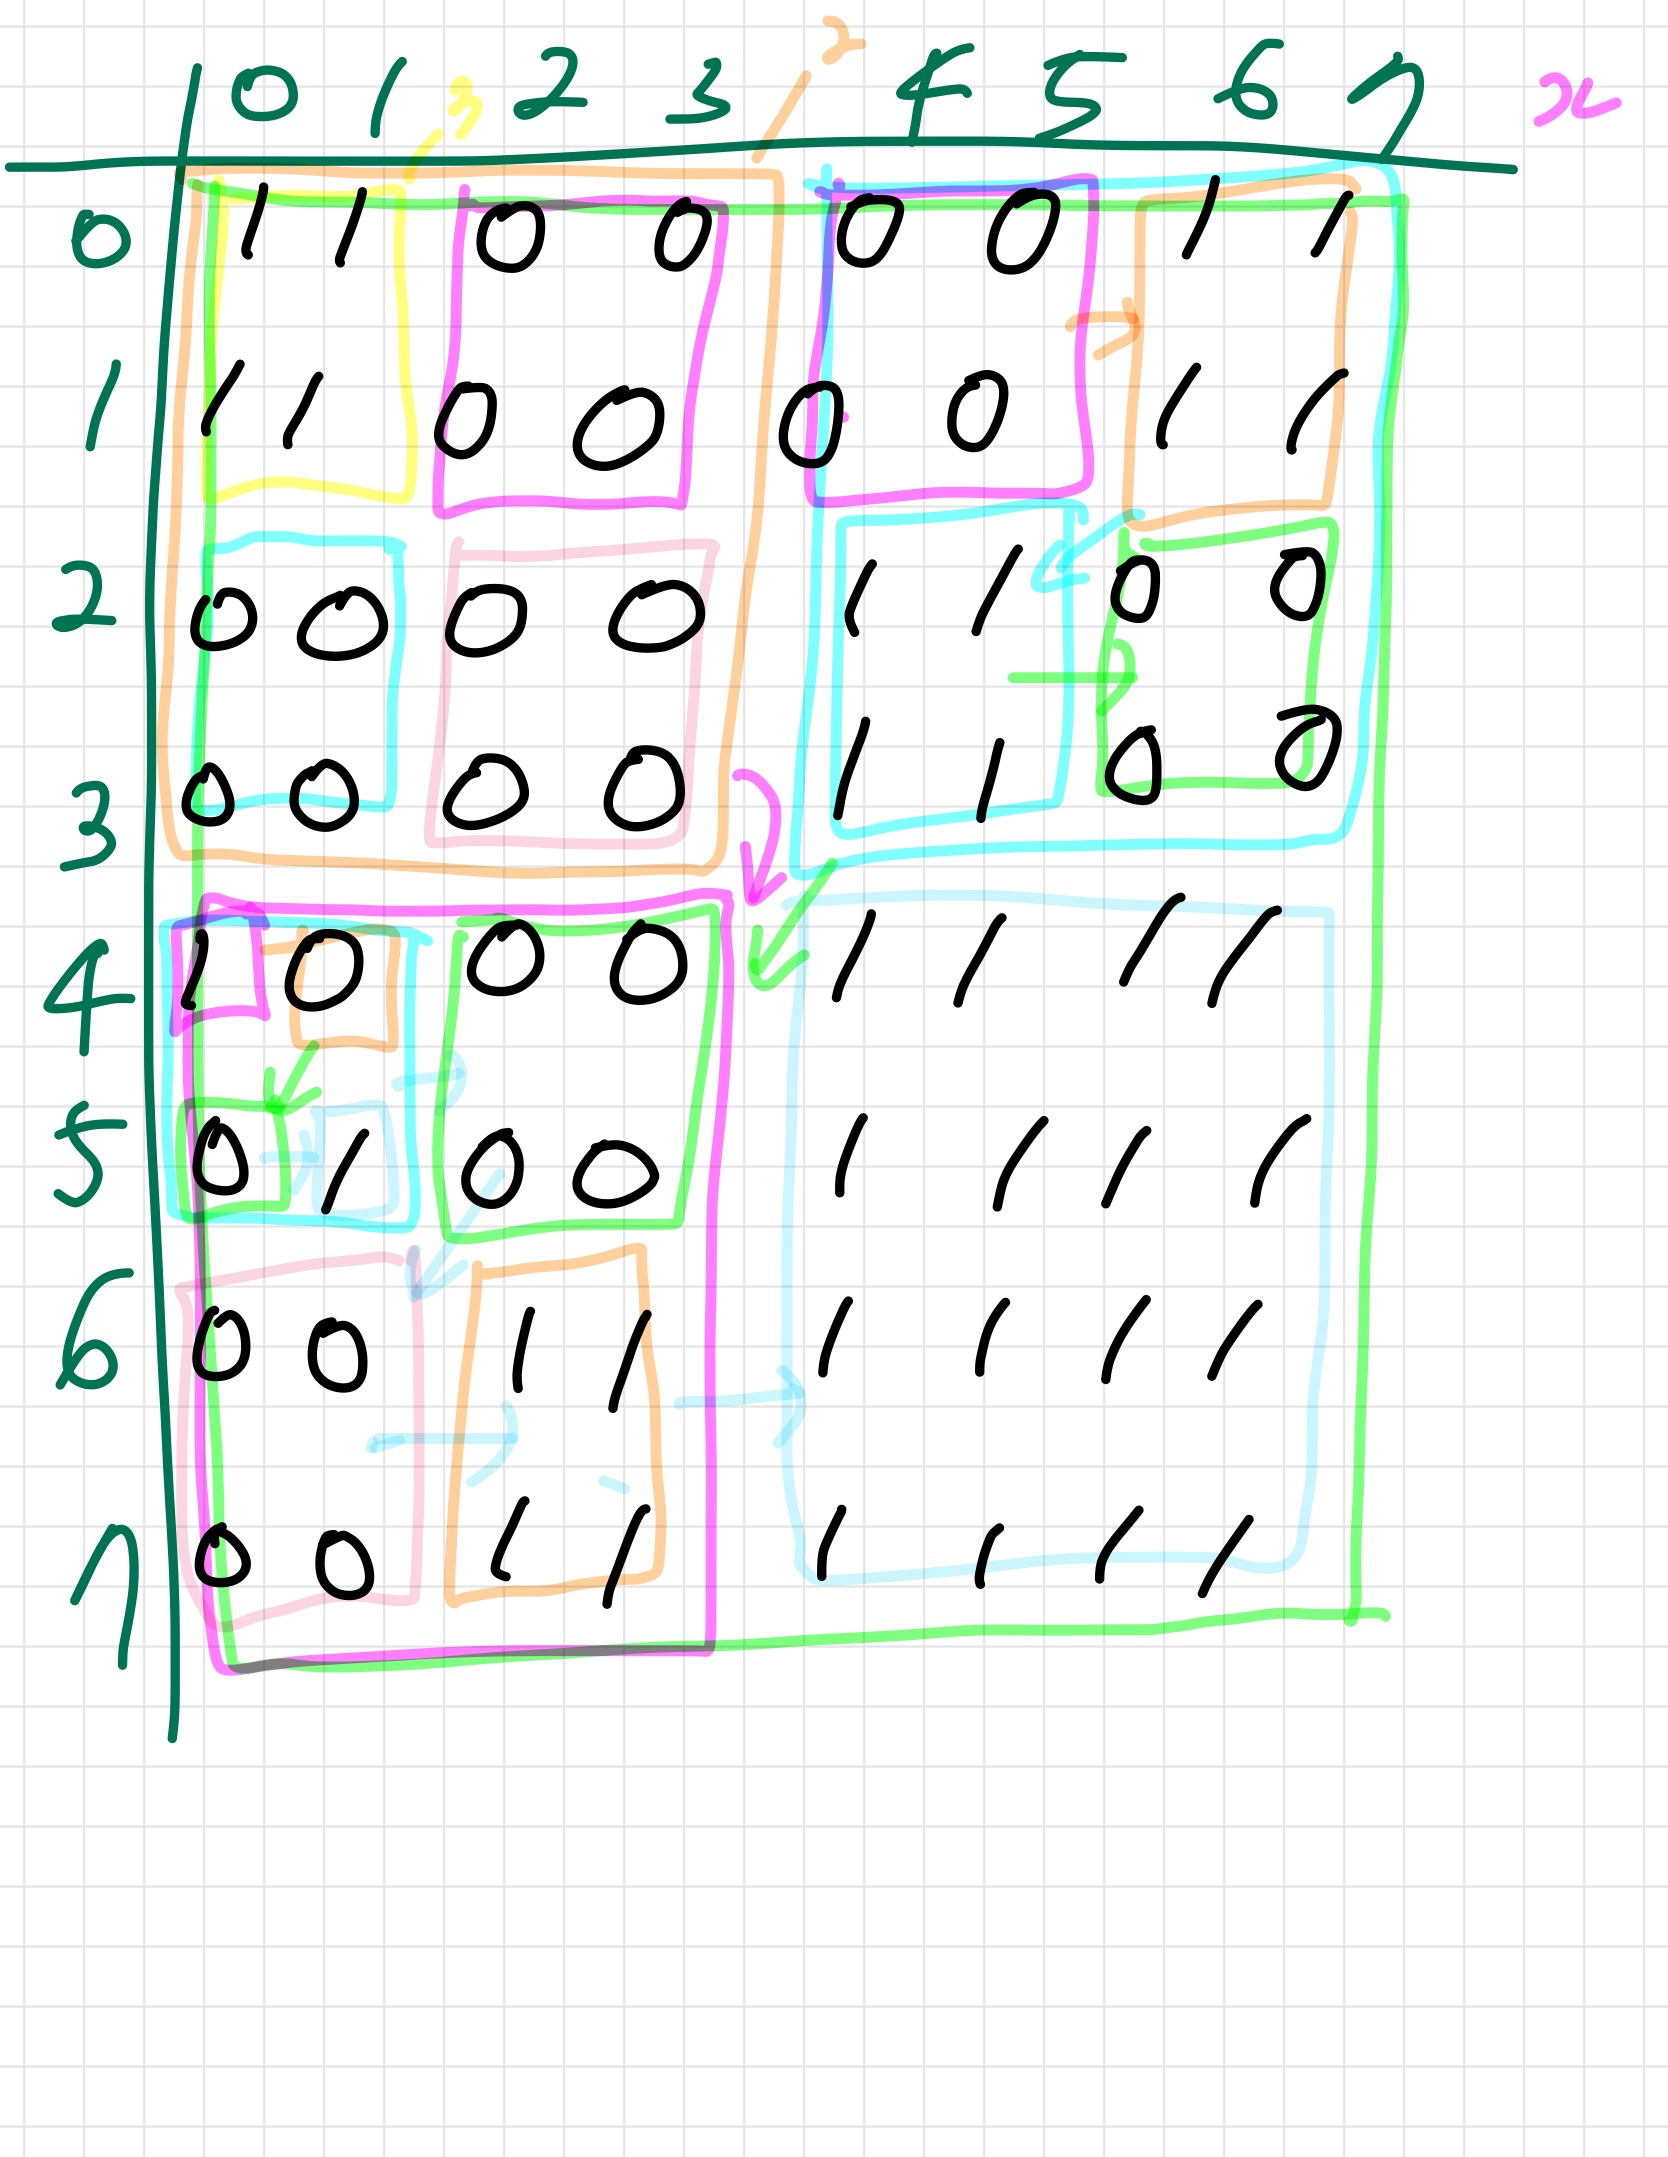 2
0 1 3 2 3 4 5 6 7 x
0 1 1 0 0 0 0 1 1
1 1 1 0 0 0 0 1 1
2 0 0 0 0 1 1 0 0
3 0 0 0 0 1 1 0 0
4 1 0 0 0 1 1 1 1
5 0 1 0 0 1 1 1 1
6 0 0 1 1 1 1 1 1
7 0 0 1 1 1 1 1 1